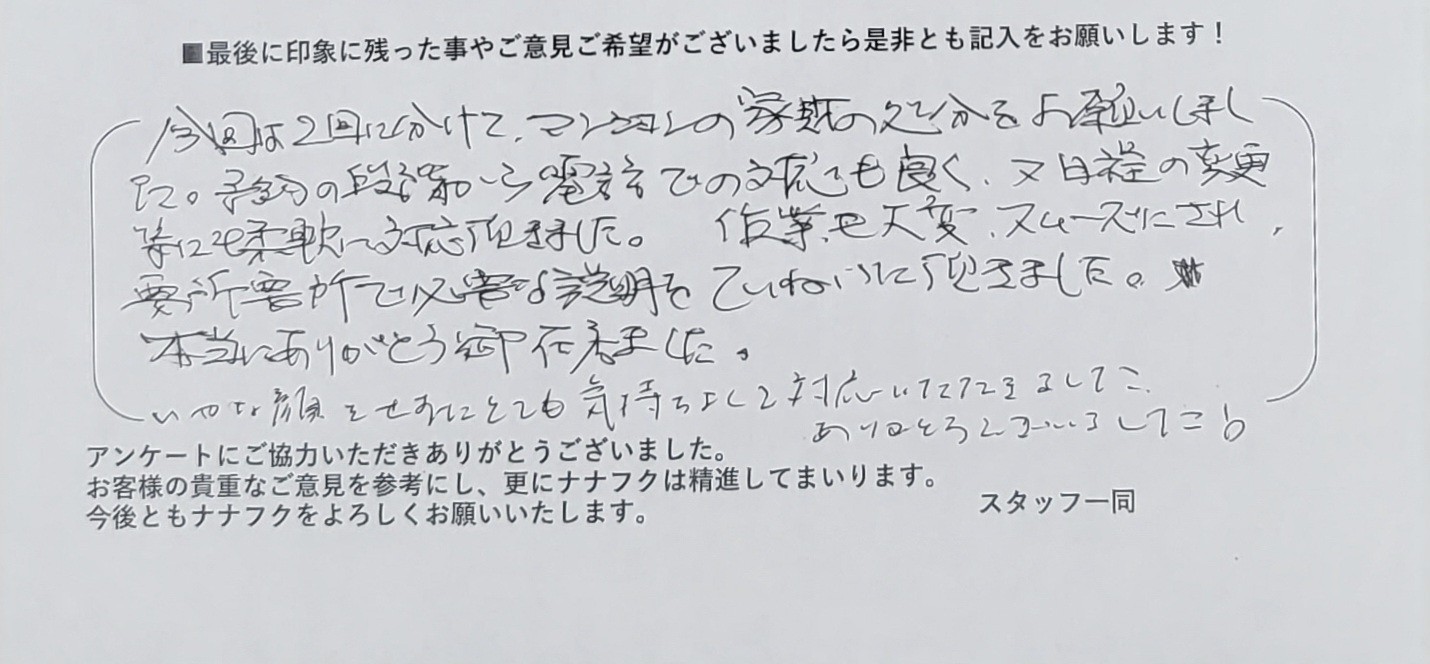 ■最後に印象に残った事やご意見ご希望がございましたら是非とも記入をお願いします！
今回は2回に分けて、マンションの家財の処分をお願いしまし
た。予約の段階から電話での対応も良く、又日程の変更
等にも柔軟に対応頂きました。 作業も大変、スムーズにされ、
要所要所で必要な説明をていねいに頂きました。
本当にありがとう御座いました。
いやな顔をせずにとても気持ちよく対応いただきまして
ありがとうございました
アンケートにご協力いただきありがとうございました。
お客様の貴重なご意見を参考にし、更にナナフクは精進してまいります。
今後ともナナフクをよろしくお願いいたします。
スタッフ一同